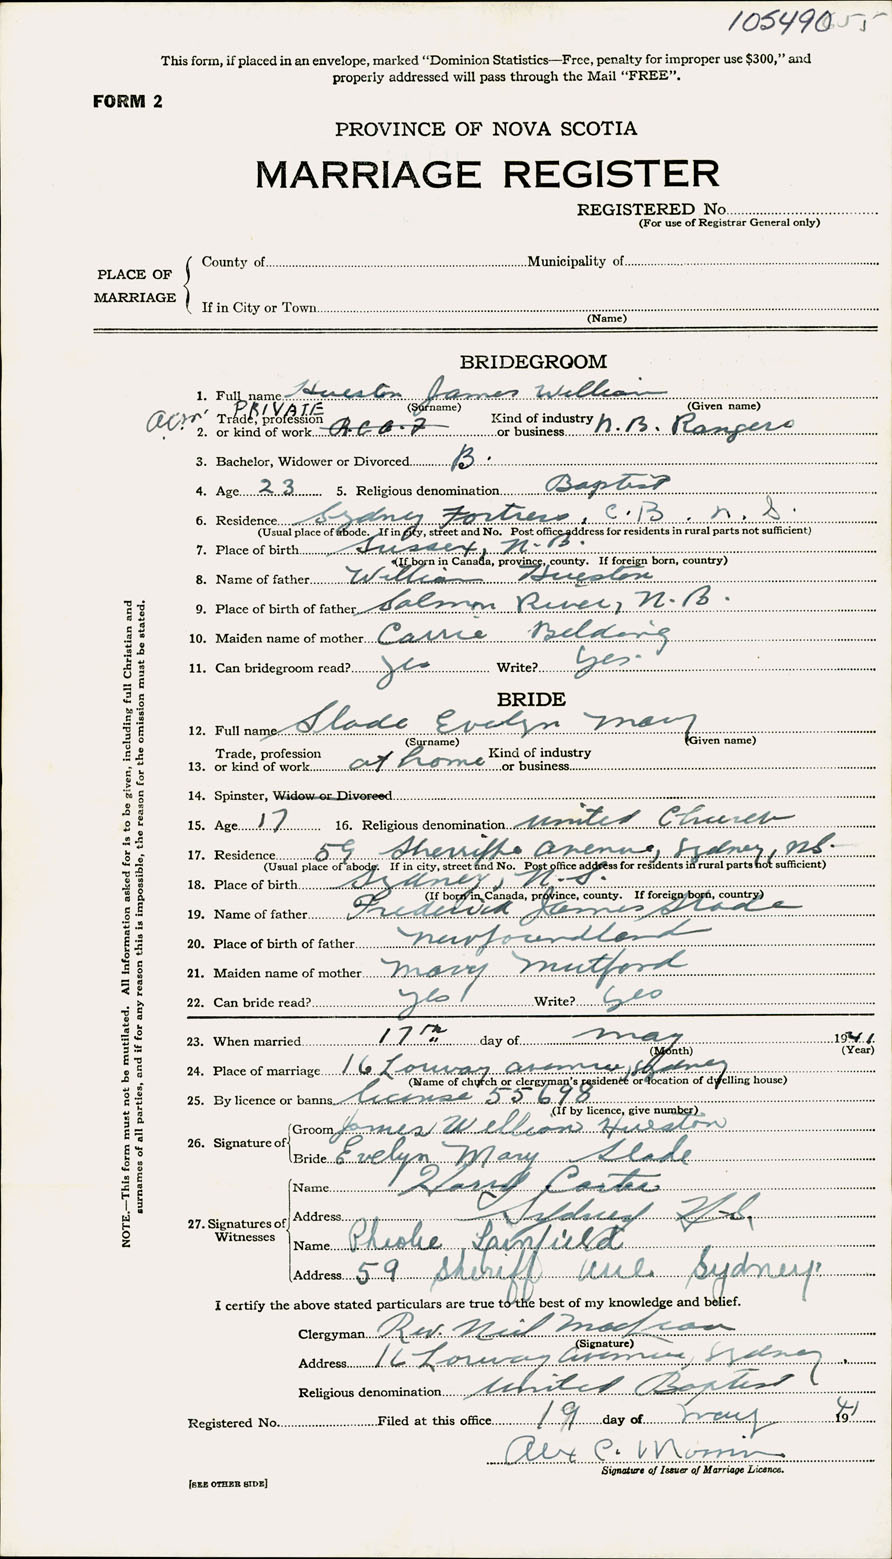 105490
This form, if placed in an envelope, marked "Dominion Statistics—Free, penalty for improper use $300," and
properly addressed will pass through the Mail "FREE".
FORM 2
PROVINCE OF NOVA SCOTIA
MARRIAGE REGISTER
REGISTERED No.
(For use of Registrar General only)
PLACE OF MARRIAGE
County of Municipality of
If in City or Town
(Name)
BRIDEGROOM
1. Full name Hueston James William
(Surname) (Given name)
PRIVATE
2. Trade, profession or kind of work Kind of industry or business N.B. Rangers
3. Bachelor, Widower or Divorced B.
4. Age 23 5. Religious denomination Baptist
6. Residence Sydney Fortress, C.B. N.S.
(Usual place of abode. If in city, street and No. Post office address for residents in rural parts not sufficient)
7. Place of birth Sussex, N.B.
(If born in Canada, province, county. If foreign born, country)
8. Name of father William Hueston
9. Place of birth of father Salmon River, N.B.
10. Maiden name of mother Carrie Belding
11. Can bridegroom read? yes Write? yes.
BRIDE
12. Full name Slade Evelyn Mary
(Surname) (Given name)
13. Trade, profession or kind of work at home Kind of industry or business
14. Spinster, Widow or Divorced
15. Age 17 16. Religious denomination United Church
17. Residence 59 Sherriffe Avenue, Sydney, N.S.
(Usual place of abode. If in city, street and No. Post office address for residents in rural parts not sufficient)
18. Place of birth Sydney, N.S.
(If born in Canada, province, county. If foreign born, country)
19. Name of father Frederick James Slade
20. Place of birth of father Newfoundland
21. Maiden name of mother Mary Mutford
22. Can bride read? yes Write? yes
23. When married 17th day of May 1941.
(Month) (Year)
24. Place of marriage 16 Lorway Avenue, Sydney
(Name of church or clergyman's residence or location of dwelling house)
25. By licence or banns license 55698
(If by licence, give number)
26. Signature of Groom James William Hueston
Bride Evelyn Mary Slade
27. Signatures of Witnesses
Name Harry Carter
Address Sydney N.S.
Name Pheobe Fairfield
Address 59 Sheriff Ave. Sydney.
I certify the above stated particulars are true to the best of my knowledge and belief.
Clergyman Rev. Neil MacLean
(Signature)
Address 16 Lorway Avenue, Sydney.
Religious denomination United Baptist
Registered No. Filed at this office 19 day of May 1941
Alex C.
Signature of Issuer of Marriage Licence.
[SEE OTHER SIDE]
NOTE.—This form must not be mutilated. All information asked for is to be given, including full Christian and
surnames of all parties, and if for any reason this is impossible, the reason for the omission must be stated.